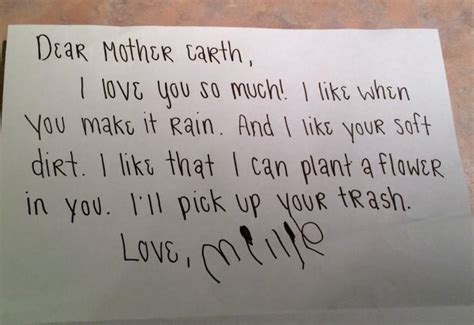 Dear Mother Earth,
I love you so much! I like when
you make it rain. And I like your soft
dirt. I like that I can plant a flower
in you. I'll pick up your trash.
Love,